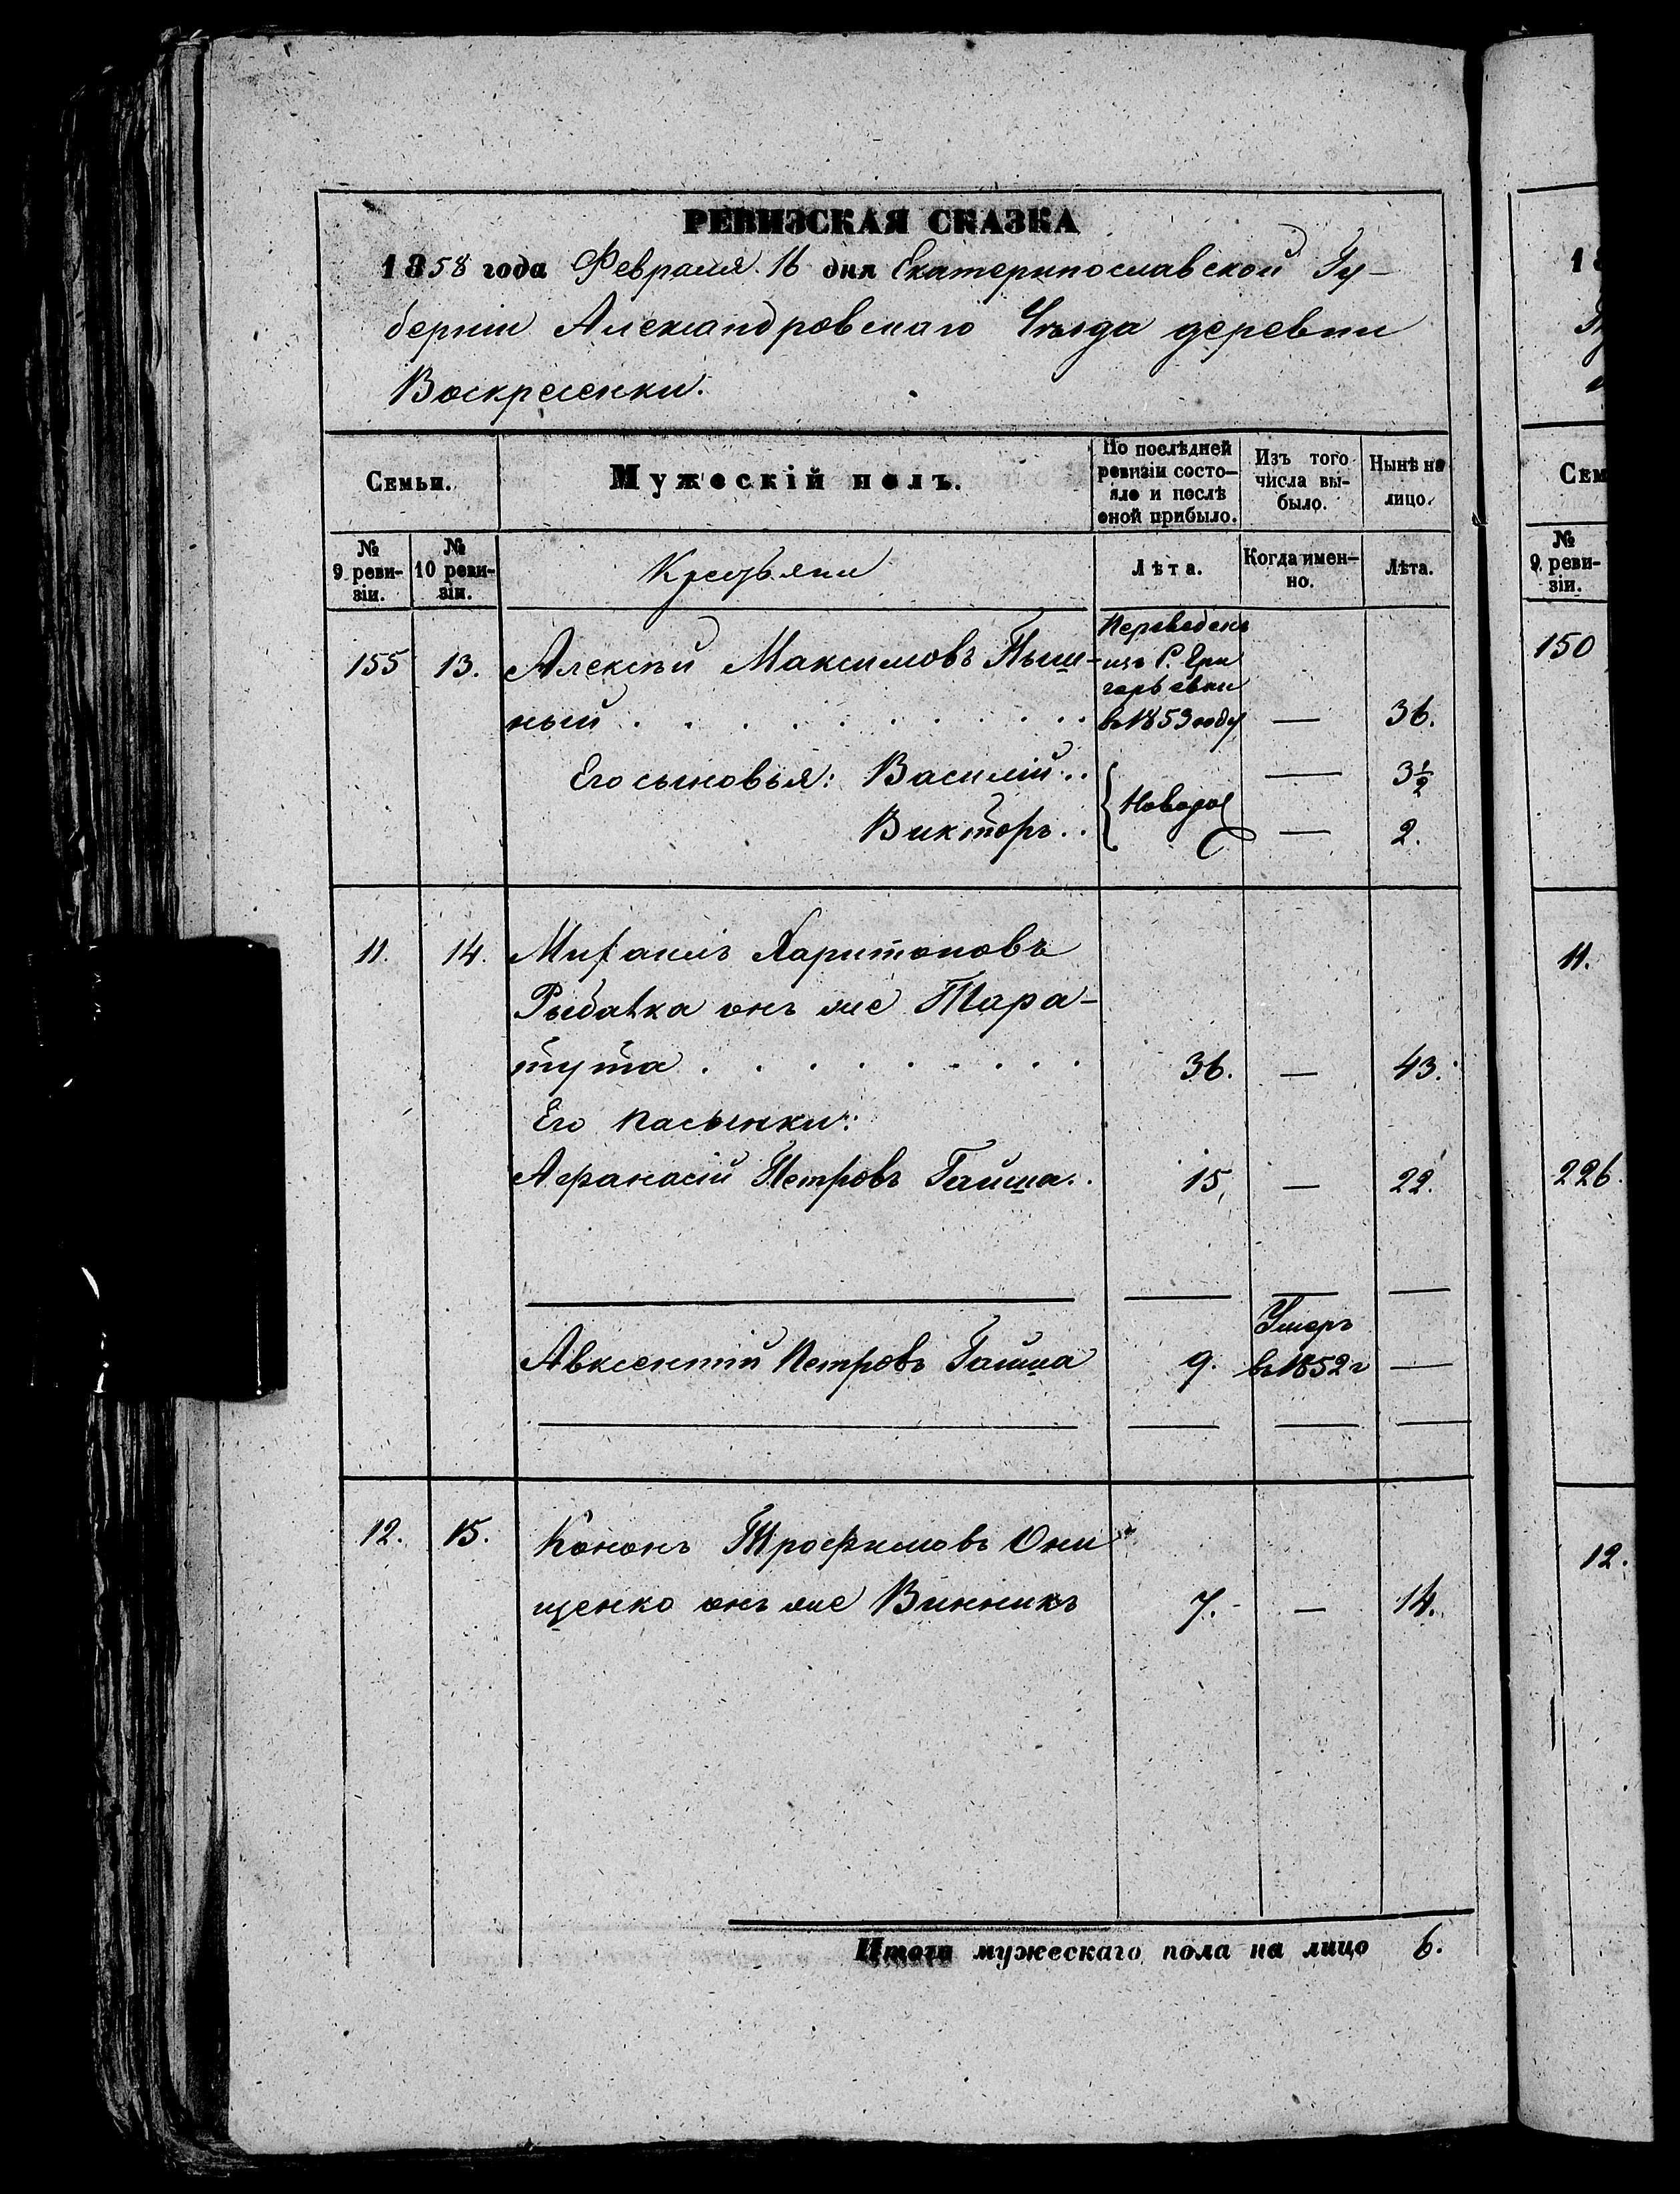 РЕВИЗСКАЯ СКАЗКА
1858 года Февраля 16 дня Екатеринославской Гу-
берніи Александровскаго Уѣзда деревни
Воскресенки.
Семьи.
Мужескій полъ.
По послѣдней ревизіи состо-яло и послѣ оной прибыло.
Изъ того числа вы-было.
Нынѣ на лицо.
№ 9 реви-зіи.
№ 10 реви-зіи.
Крестьяни
Лѣта.
Когда имен-но.
Лѣта.
155 13. Алексѣй Максимовъ Пыш-
ный . . . . . . . . . — 36.
Переведенъ
изъ С. Гри
горьевки
въ 1853 году
Его сыновья: Василій . . — 3½
Новорож
Викторъ . . — 2.
11. 14. Михаилъ Харитоновъ
Рыбалка онъ же Тара-
тута . . . . . . . . 36. — 43.
Его пасынки:
Афанасій Петровъ Гайша . . 15. — 22.
Авксентій Петровъ Гайша 9. Умеръ въ 1852 г —
12. 15. Кононъ Трофимовъ Они
щенко онъ же Винникъ 7. — 14.
Итого мужескаго пола на лицо 6.
Сем
№ 9 реви-зіи.
150
11.
226.
12.